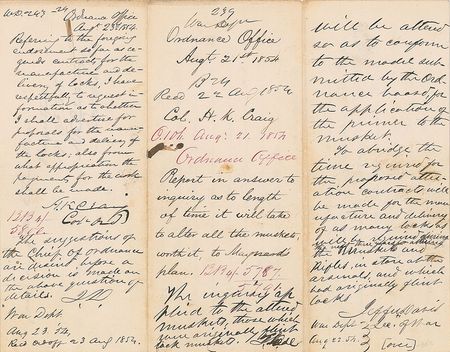 W.D. 243
Ordnance Office
Augt. 23d. 1854.
Referring to the foregoing
endorsement so far as re-
gards contracts for the
manufacture and de-
livery of locks, I have
respectfully to request in-
formation as to whether
I shall advertise for
proposals for the manu-
facture and delivery of
the locks. also from
what appropriation the
payments for the work
shall be made.
H.K. Craig
Col.
1213 of
The suggestions of
the Chief of ordnance
before a
decision is made on
the above question of
details.
J.D.
War Dept
Aug 23. 54.
Recd. 23 Aug 1854.
239
War Dept
Ordnance Office
Augt. 21st 1854
Recd 22 Aug 1854
Col. H. K. Craig
Aug. 21. 1854
Ordnance Office
Report in answer to
inquiry as to length
of time it will take
to alter all the muskets
worth it, to Maynard's
plan. 1213 of 5787
The inquiry ap-
plied to the altered
muskets, those which
were originally flint
lock muskets.
will be altered
so as to conform
to the model sub-
mitted by the Ord-
nance board for
the application of
the primer to the
musket.
To abridge the
time required for
the proposed alter-
ation contracts will
be made for the manu-
facture and delivery
of as many locks as
the muskets and
Rifles, in store at the
arsenals, and which
had originally flint
locks
Jeffer. Davis
War Dept Sec. of War
Aug 22. 54.
(over)